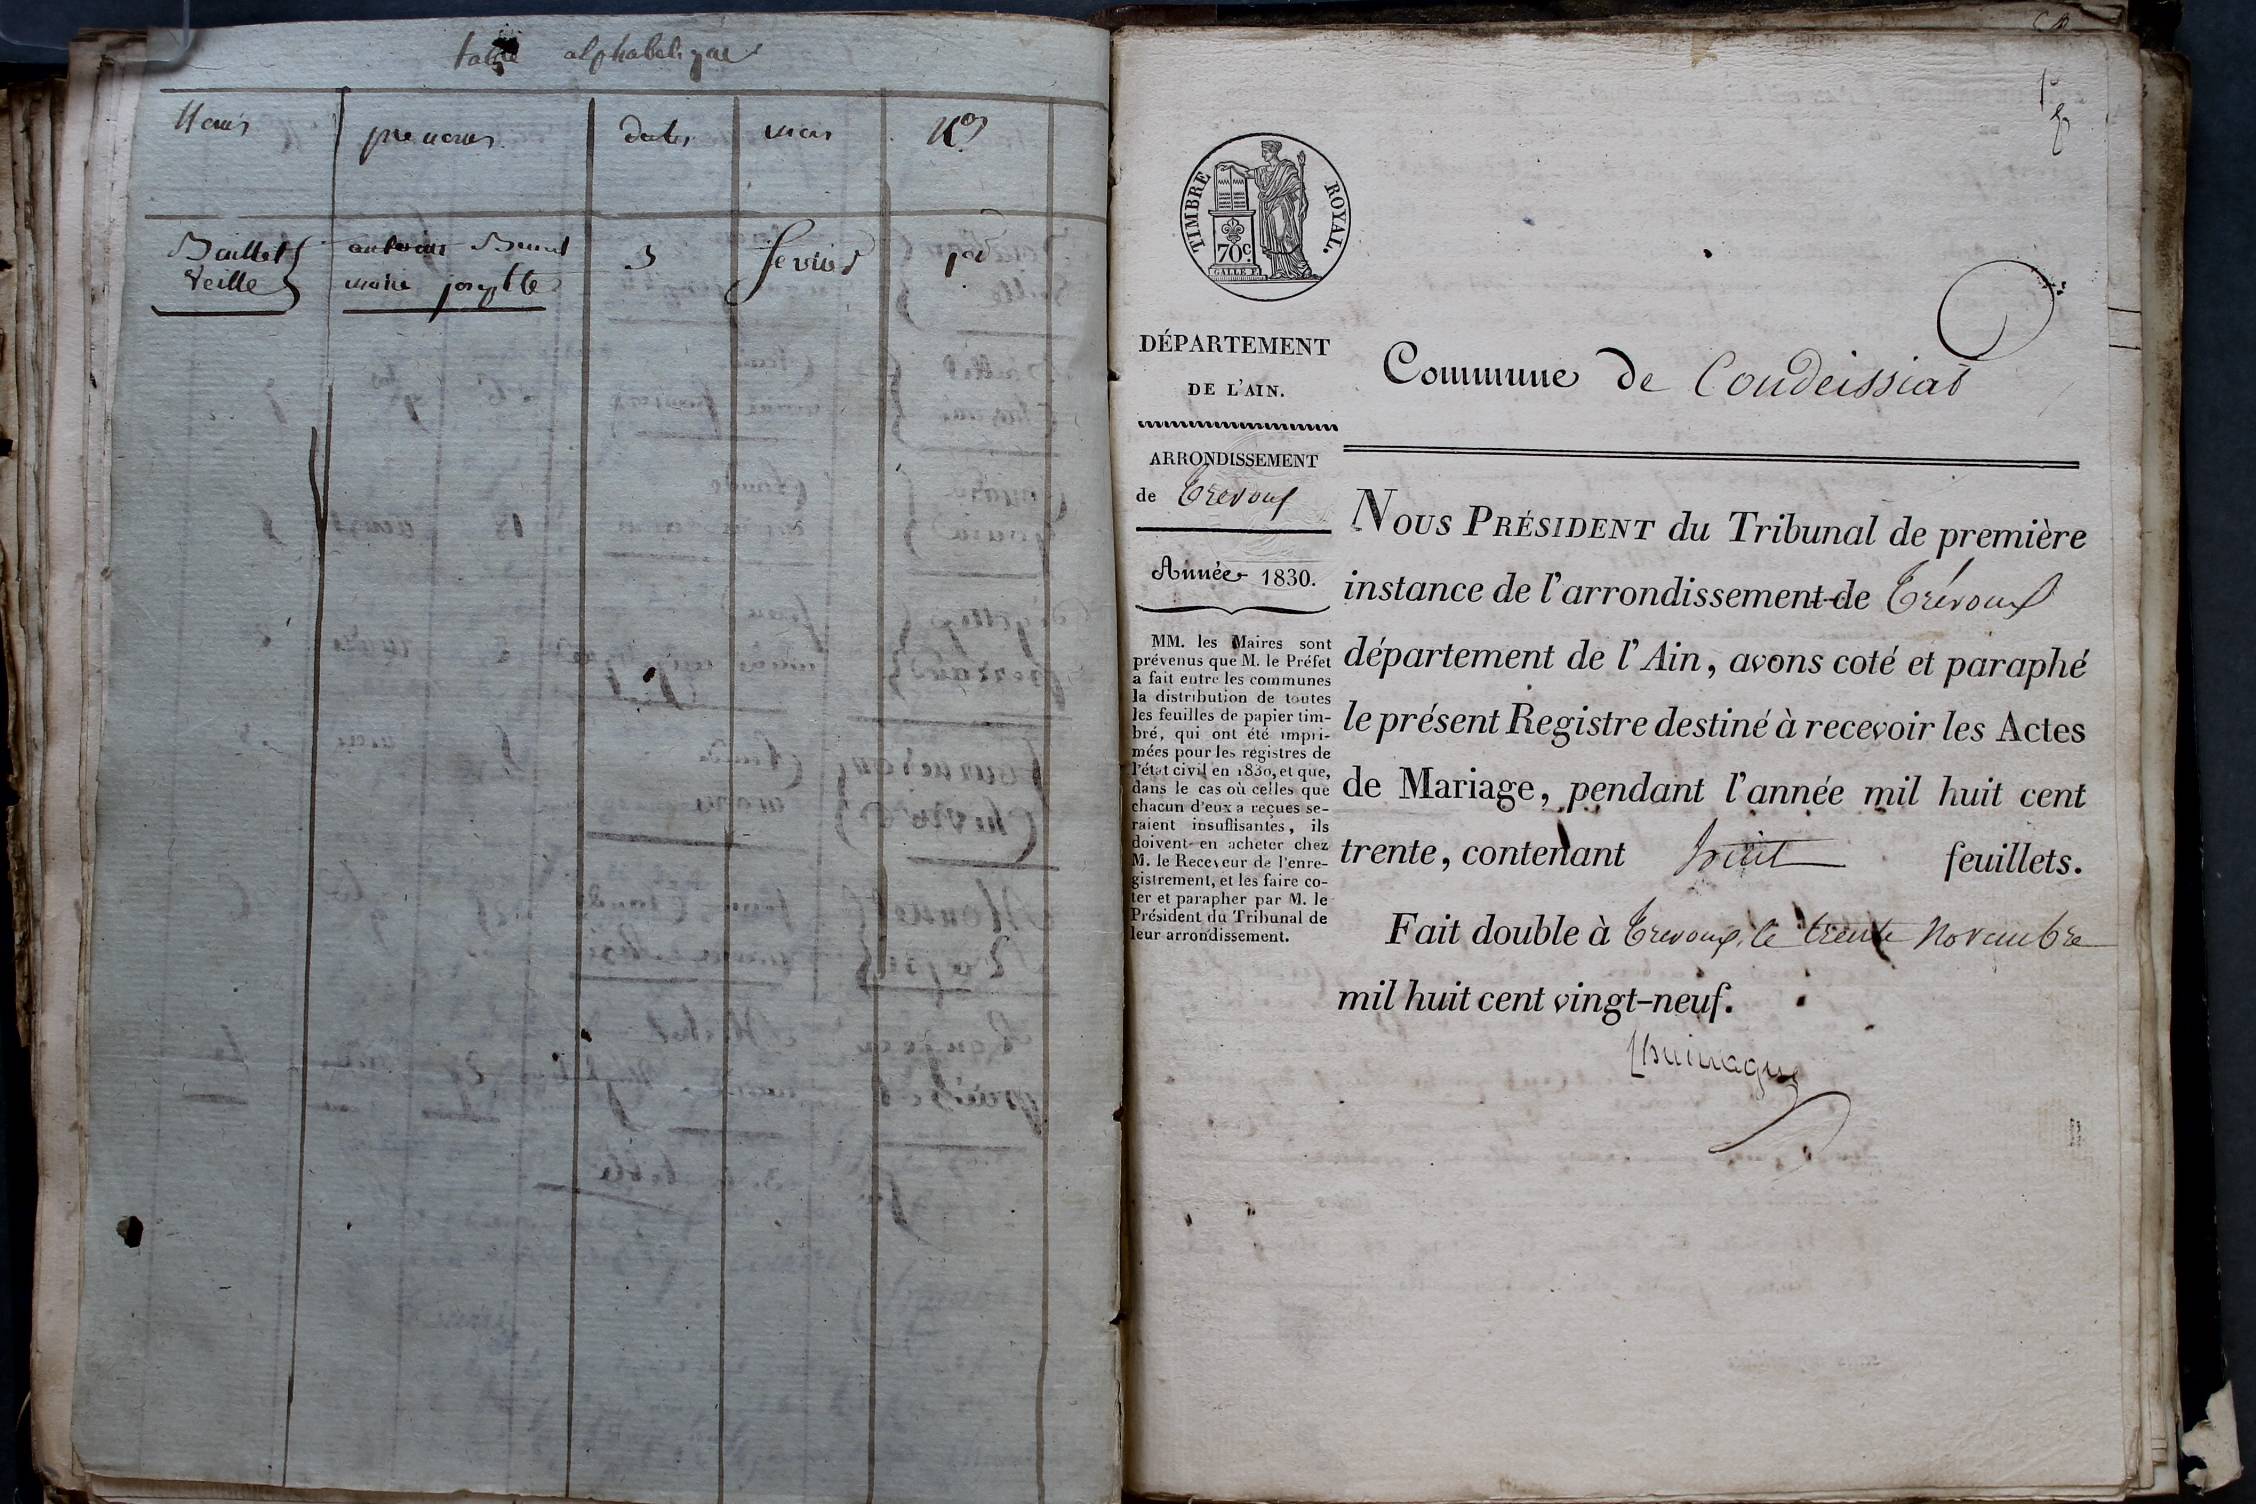 table alphabetique
Noms prenoms dates mois Nos
Baillet antoine Benoit 3 fevrier 1er
Veille marie josephte
TIMBRE ROYAL.
70c.
GALLE F.
DÉPARTEMENT
DE L'AIN.
ARRONDISSEMENT
de Trevoux
Année 1830.
MM. les Maires sont
prévenus que M. le Préfet
a fait entre les communes
la distribution de toutes
les feuilles de papier tim-
bré, qui ont été impri-
mées pour les régistres de
l'état civil en 1830, et que,
dans le cas où celles que
chacun d'eux a reçues se-
raient insuffisantes, ils
doivent en acheter chez
M. le Receveur de l'enre-
gistrement, et les faire co-
ter et parapher par M. le
Président du Tribunal de
leur arrondissement.
Commune de Condeissiat
NOUS PRÉSIDENT du Tribunal de première
instance de l'arrondissement de Trévoux
département de l'Ain, avons coté et paraphé
le présent Registre destiné à recevoir les Actes
de Mariage, pendant l'année mil huit cent
trente, contenant huit feuillets.
Fait double à Trevoux, le trente Novembre
mil huit cent vingt-neuf.